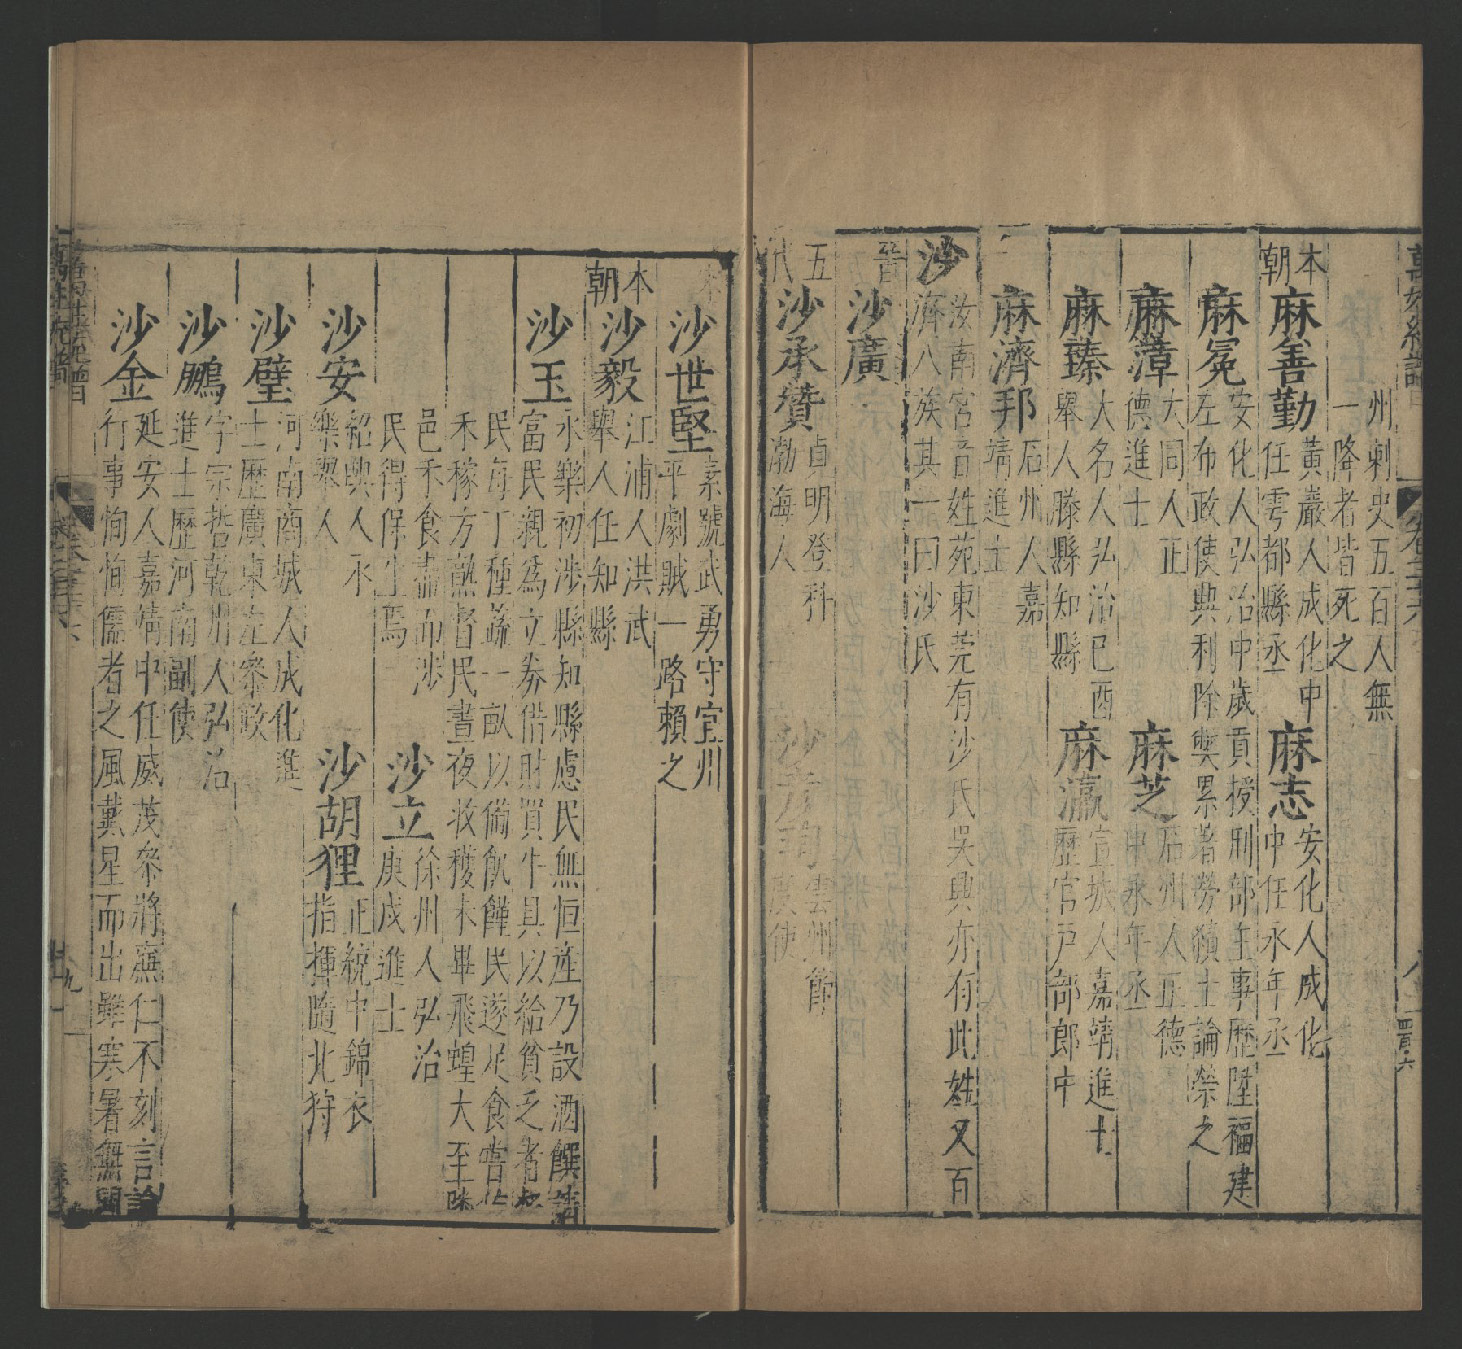 州刺史五百人無
一降者皆死之
本朝
麻善勤
黃巖人成化中
任雩都縣丞
麻志
安化人成化
中任永年丞
麻冕
安化人弘治中歲貢授刑部主事歷陞福建
左布政使興利除弊累著勞績士論榮之
麻漳
大同人正
德進士
麻芝
石州人正德
中永年丞
麻臻
大名人弘治己酉
舉人滕縣知縣
麻瀛
宣城人嘉靖進士
歷官戶部郎中
麻濟邦
石州人嘉
靖進士
沙
汝南宮音姓苑東莞有沙氏吳興亦有此姓又百
濟八族其一曰沙氏
晉
沙廣
五代
沙承贊
貞明登科
渤海人
沙彥珣
雲州節
度使
宋
沙世堅
素號武勇守宜州
平劇賊一路賴之
本朝
沙毅
江浦人洪武
舉人任知縣
沙玉
永樂初涉縣知縣慮民無恒產乃設酒饌請
富民親為立券借財買牛具以給貧乏者
民每丁種蔬一畝以備飢饉民遂足食嘗
禾稼方熟督民晝夜收穫未畢飛蝗大至
邑禾食盡而涉
民得保生焉
沙立
徐州人弘治
庚戌進士
沙安
紹興人永
樂舉人
沙胡狸
正統中錦衣
指揮隨北狩
沙璧
河南商城人成化進
士歷廣東左參政
沙鵬
字宗哲乾州人弘治
進士歷河南副使
沙金
延安人嘉靖中任威茂參將廉仁不刻言論
行事恂恂儒者之風戴星而出雖寒暑無間